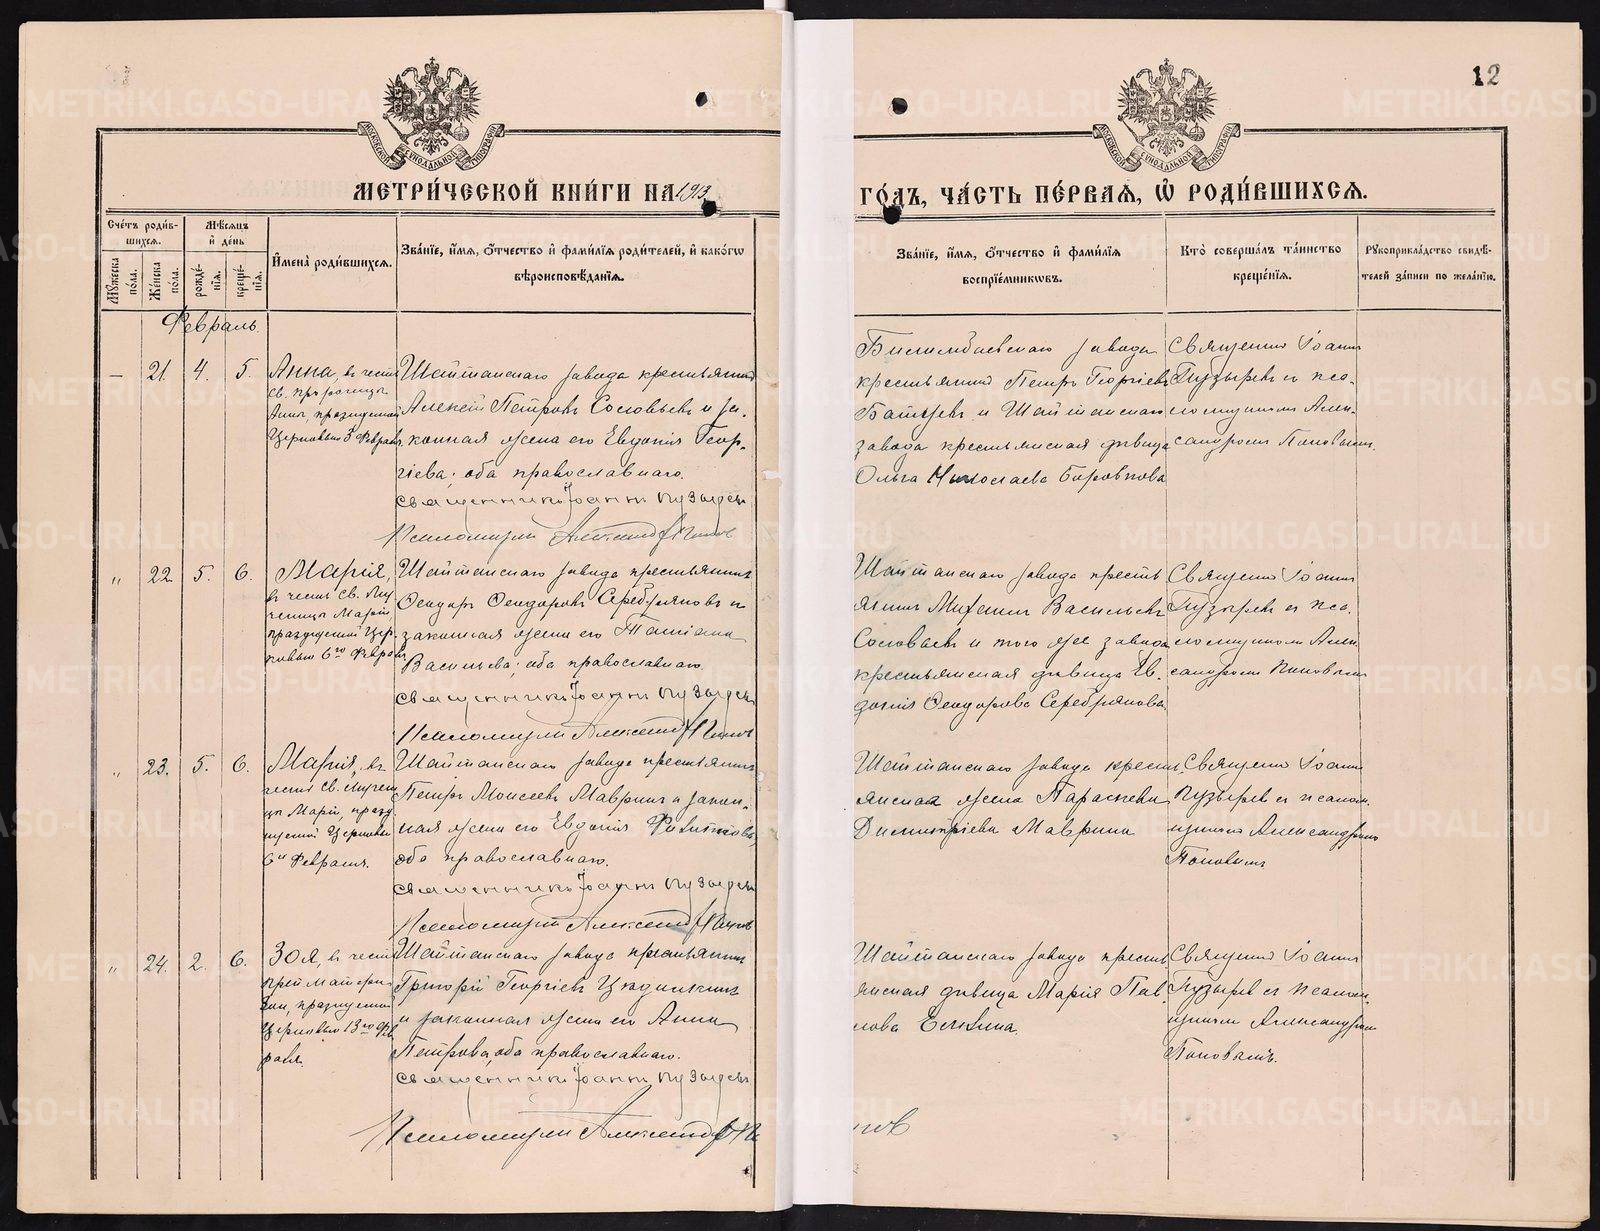 12
МОСКОВСКОЙ СУНОДАЛЬНОЙ ТИПОГРАФІИ
МОСКОВСКОЙ СУНОДАЛЬНОЙ ТИПОГРАФІИ
МЕТРИ́ЧЕСКОЙ КНИ́ГИ НА 193
ГО́ДЪ, ЧА́СТЬ ПЕ́РВАѦ, Ѡ҆ РОДИ́ВШИХСѦ.
Сче́тъ роди́в-
шихсѧ.
Мѣ́сѧцъ
и҆ де́нь
Мꙋ́жеска по́ла.
Же́нска по́ла.
рожде́-
нїѧ.
креще́-
нїѧ.
И҆мена̀ роди́вшихсѧ.
Зва́нїе, и҆́мѧ, ѻ҆́тчество и҆ фами́лїѧ роди́телей, и҆ како́гѡ
вѣроисповѣ́данїѧ.
Зва́нїе, и҆́мѧ, ѻ҆́тчество и҆ фами́лїѧ
воспрїе́мникѡвъ.
Кто̀ соверша́лъ та́инство
креще́нїѧ.
Рꙋкоприкла́дство свидѣ́-
телей за́писи по жела́нїю.
Февраль
— 21. 4. 5.
Анна, въ честь
св. пророчицы
Анны, празднуемой
Церковью 3 Февраля.
Шайтанскаго завода крестьянинъ
Алексѣй Петровъ Соловьевъ и за-
конная жена его Евдокія Геор-
гіева; оба православнаго.
священникъ Іоаннъ Пузыревъ
Псаломщикъ Александръ Поповъ
Билимбаевскаго завода
крестьянинъ Петръ Георгіевъ
Батуевъ и Шайтанскаго
завода крестьянская дѣвица
Ольга Николаева Боровкова
Священникъ Іоаннъ
Пузыревъ съ пса-
ломщикомъ Алек-
сандромъ Поповымъ.
„ 22 5. 6.
Марія,
въ честь св. му-
ченицы Маріи,
празднуемой Цер-
ковью 6го Февраля
Шайтанскаго завода крестьянинъ
Ѳеодоръ Ѳеодоровъ Серебряковъ и
законная жена его Татіана
Васильева; оба православнаго.
священникъ Іоаннъ Пузыревъ
Псаломщикъ Александръ Поповъ
Шайтанскаго завода кресть
янинъ Михаилъ Васильевъ
Соловьевъ и того же завода
крестьянская дѣвица Ев-
докія Ѳеодорова Серебрякова.
Священникъ Іоаннъ
Пузыревъ съ пса-
ломщикомъ Алек-
сандромъ Поповымъ
„ 23. 5. 6.
Марія, въ
честь св. мучени-
цы Маріи, празд-
нуемой Церковью
6го Февраля.
Шайтанскаго завода крестьянинъ
Петръ Моисеевъ Мавринъ и закон-
ная жена его Евдокія
оба православнаго.
священникъ Іоаннъ Пузыревъ
Псаломщикъ Александръ Поповъ
Шайтанскаго завода кресть-
янская жена Параскева
Димитріева Маврина
Священникъ Іоаннъ
Пузыревъ съ псалом-
щикомъ Александромъ
Поповымъ.
„ 24. 2. 6.
Зоя, въ честь
празднуемой
Церковью 13го Фев
раля.
Шайтанскаго завода крестьянинъ
Григорій Георгіевъ
и законная жена его Анна
Петрова, оба православнаго.
священникъ Іоаннъ Пузыревъ
Псаломщикъ Александръ По
повъ
Шайтанскаго завода кресть
янская дѣвица Марія Пав-
лова Елькина.
Священникъ Іоаннъ
Пузыревъ съ псалом-
щикомъ Александромъ
Поповымъ.